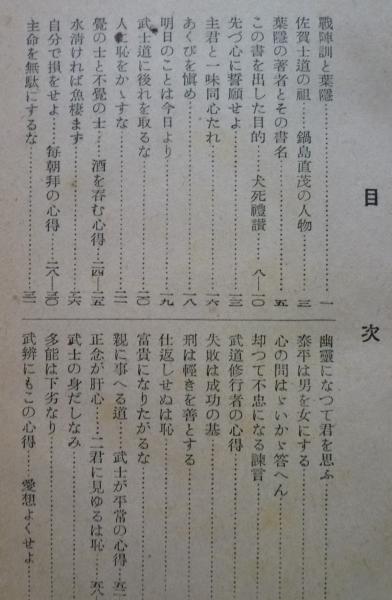 目次
戰陣訓と葉隱……一
佐賀士道の祖……鍋島直茂の人物……三
葉隱の著者とその書名……五
この書を出した目的……犬死禮讃……八―一〇
先づ心に誓願せよ……一三
主君と一味同心たれ……一六
あくびを愼め……一八
明日のことは今日より……一九
武士道に後れを取るな……二〇
人に恥をかゝすな……二一
覺の士と不覺の士……酒を呑む心得……二四―二五
水淸ければ魚棲まず……二六
自分で損をせよ……每朝拜の心得……二八―三〇
主命を無駄にするな……三一
幽靈になつて君を思ふ
泰平は男を女にする
心の問はゞいかゞ答へん
却つて不忠になる諫言
武道修行者の心得
失敗は成功の基
刑は輕きを善とする
仕返しせぬは恥
富貴になりたがるな
親に事へる道……武士が平常の心得……五二
正念が肝心……二君に見ゆるは恥……五八
武士の身だしなみ
多能は下劣なり
武辨にもこの心得……愛想よくせよ